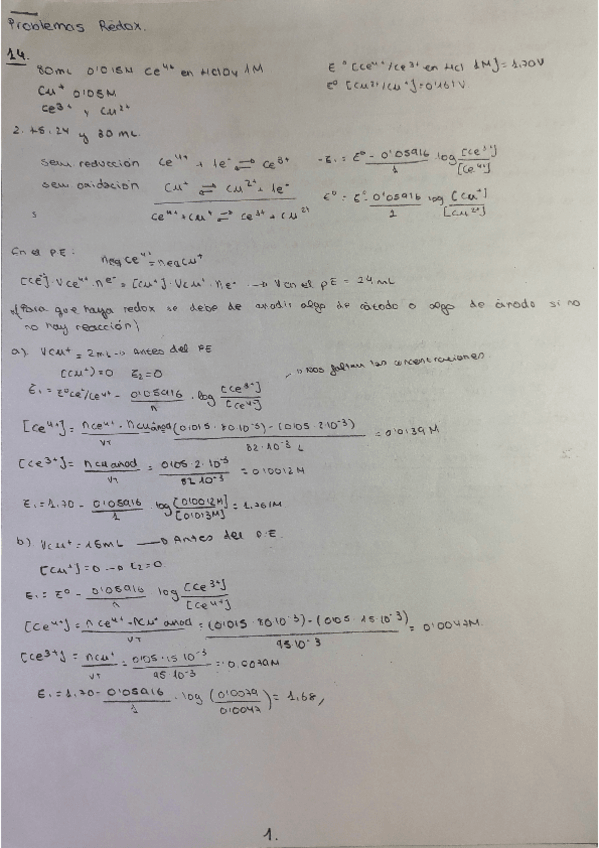 Problemas Redox.
14.
80mL 0'015M Ce⁴⁺ en HClO4 1M
E° [Ce⁴⁺/Ce³⁺ en HCl 1M] = 1,70V
Cu⁺ 0'05M
E° [Cu²⁺/Cu⁺] = 0'161V
Ce³⁺ y Cu²⁺
2. 15. 24 y 30 mL.
sem reducción Ce⁴⁺ + 1e⁻ ⇌ Ce³⁺ E₁ = E° - 0'05916/1 log [Ce³⁺]/[Ce⁴⁺]
sem oxidación Cu⁺ ⇌ Cu²⁺ + 1e⁻ E° = E° - 0'05916/2 log [Cu⁺]/[Cu²⁺]
Ce⁴⁺ + Cu⁺ ⇌ Ce³⁺ + Cu²⁺
En el PE: neq Ce⁴⁺ = neq Cu⁺
[Ce]·VCe⁴⁺·ne⁻ = [Cu⁺]·VCu⁺·ne⁻ → V en el PE = 24 mL
(Para que haya redox se debe de añadir algo de cátodo o algo de ánodo si no
no hay reacción)
a). VCu⁺ = 2mL → Antes del PE
[Cu⁺] = 0 E₂ = 0
→ Nos faltan las concentraciones
E₁ = E° Ce⁴⁺/Ce³⁺ - 0'05916/n · log [Ce³⁺]/[Ce⁴⁺]
[Ce⁴⁺] = nCe⁴⁺ - nCu⁺ añad/VT = (0'015 · 80·10⁻³) - (0'05 · 2·10⁻³)/82·10⁻³ L = 0'0139 M
[Ce³⁺] = nCu añad/VT = 0'05 · 2·10⁻³/82·10⁻³ = 0'0012 M
E₁ = 1.70 - 0'05916/1 log [0'0012M]/[0'013M] = 1.761M
b) VCu⁺ = 15mL → Antes del P.E.
[Cu⁺] = 0 → E₂ = 0
E₁ = E° - 0'05916/n log [Ce³⁺]/[Ce⁴⁺]
[Ce⁴⁺] = nCe⁴⁺ - nCu⁺ añad/VT = (0'015 · 80·10⁻³) - (0'05 · 15·10⁻³)/95·10⁻³ = 0'0047M.
[Ce³⁺] = nCu⁺/VT = 0'05 · 15·10⁻³/95·10⁻³ = 0.0079M
E₁ = 1.70 - 0'05916/1 · log (0'0079/0'0047) = 1,68,
1.